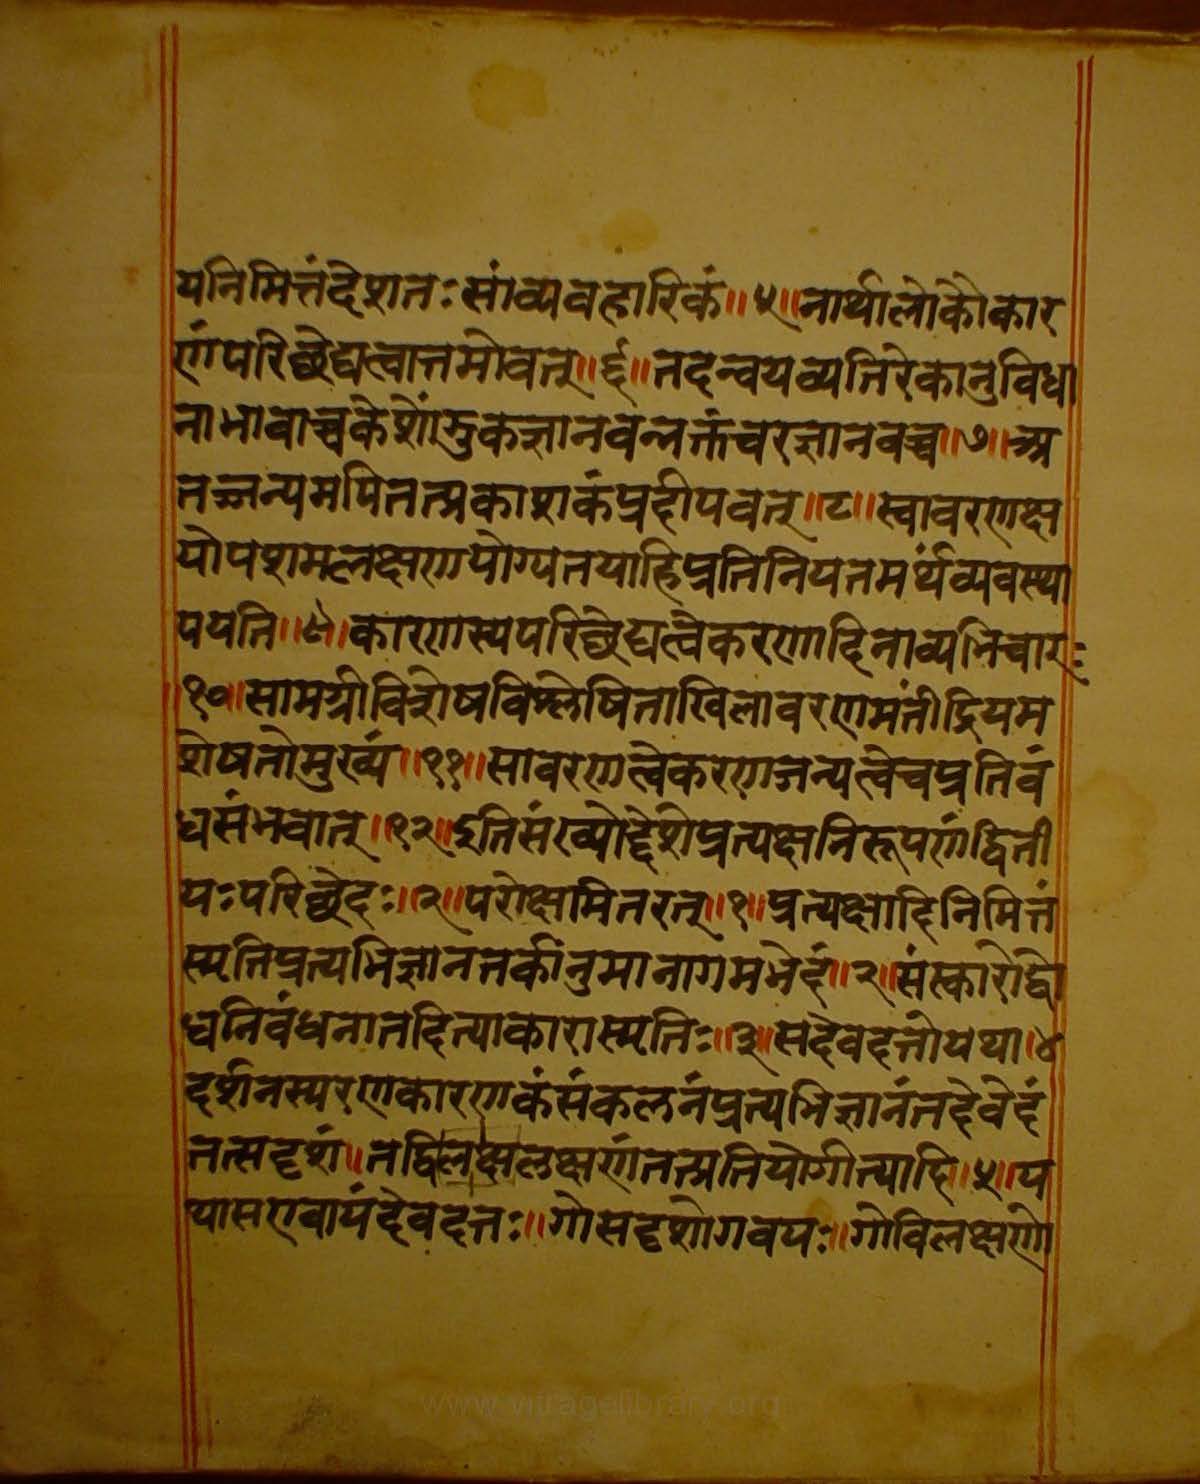 यनिमित्तंदेशतःसांव्यवहारिकं॥५॥नार्थालोकौकार
णंपरिछेद्यत्वात्तमोवत्॥६॥तदन्वयव्यतिरेकानुविधा
नाभावाच्चकेशोंडुकज्ञानवन्नक्तंचरज्ञानवच्च॥७॥अ
तज्जन्यमपितत्प्रकाशकंप्रदीपवत्॥८॥स्वावरणक्ष
योपशमलक्षणयोग्यतयाहिप्रतिनियतमर्थंव्यवस्था
पयति॥९॥कारणस्यपरिछेद्यत्वेकरणादिनाव्यभिचारः
॥१०॥सामग्रीविशेषविश्लेषिताखिलावरणमतींद्रियम
शेषतोमुख्यं॥११॥सावरणत्वेकरणजन्यत्वेचप्रतिवं
धसंभवात्॥१२॥इतिसंख्योद्देशेप्रत्यक्षनिरूपणंद्विती
यःपरिछेदः॥२॥परोक्षमितरत्॥१॥प्रत्यक्षादिनिमित्तं
स्मृतिप्रत्यभिज्ञानतर्कानुमानागमभेदं॥२॥संस्कारोद्वो
धनिवंधनातदित्याकारास्मृतिः॥३॥सदेवदत्तोयथा॥४
दर्शनस्मरणकारणकंसंकलनंप्रत्यभिज्ञानंतदेवेदं
तत्सदृशं॥तद्विलक्षलक्षणंतत्प्रतियोगीत्यादि॥५॥य
थासएवायंदेवदत्तः॥गोसदृशोगवयः॥गोविलक्षणो
www.vitragelibrary.org